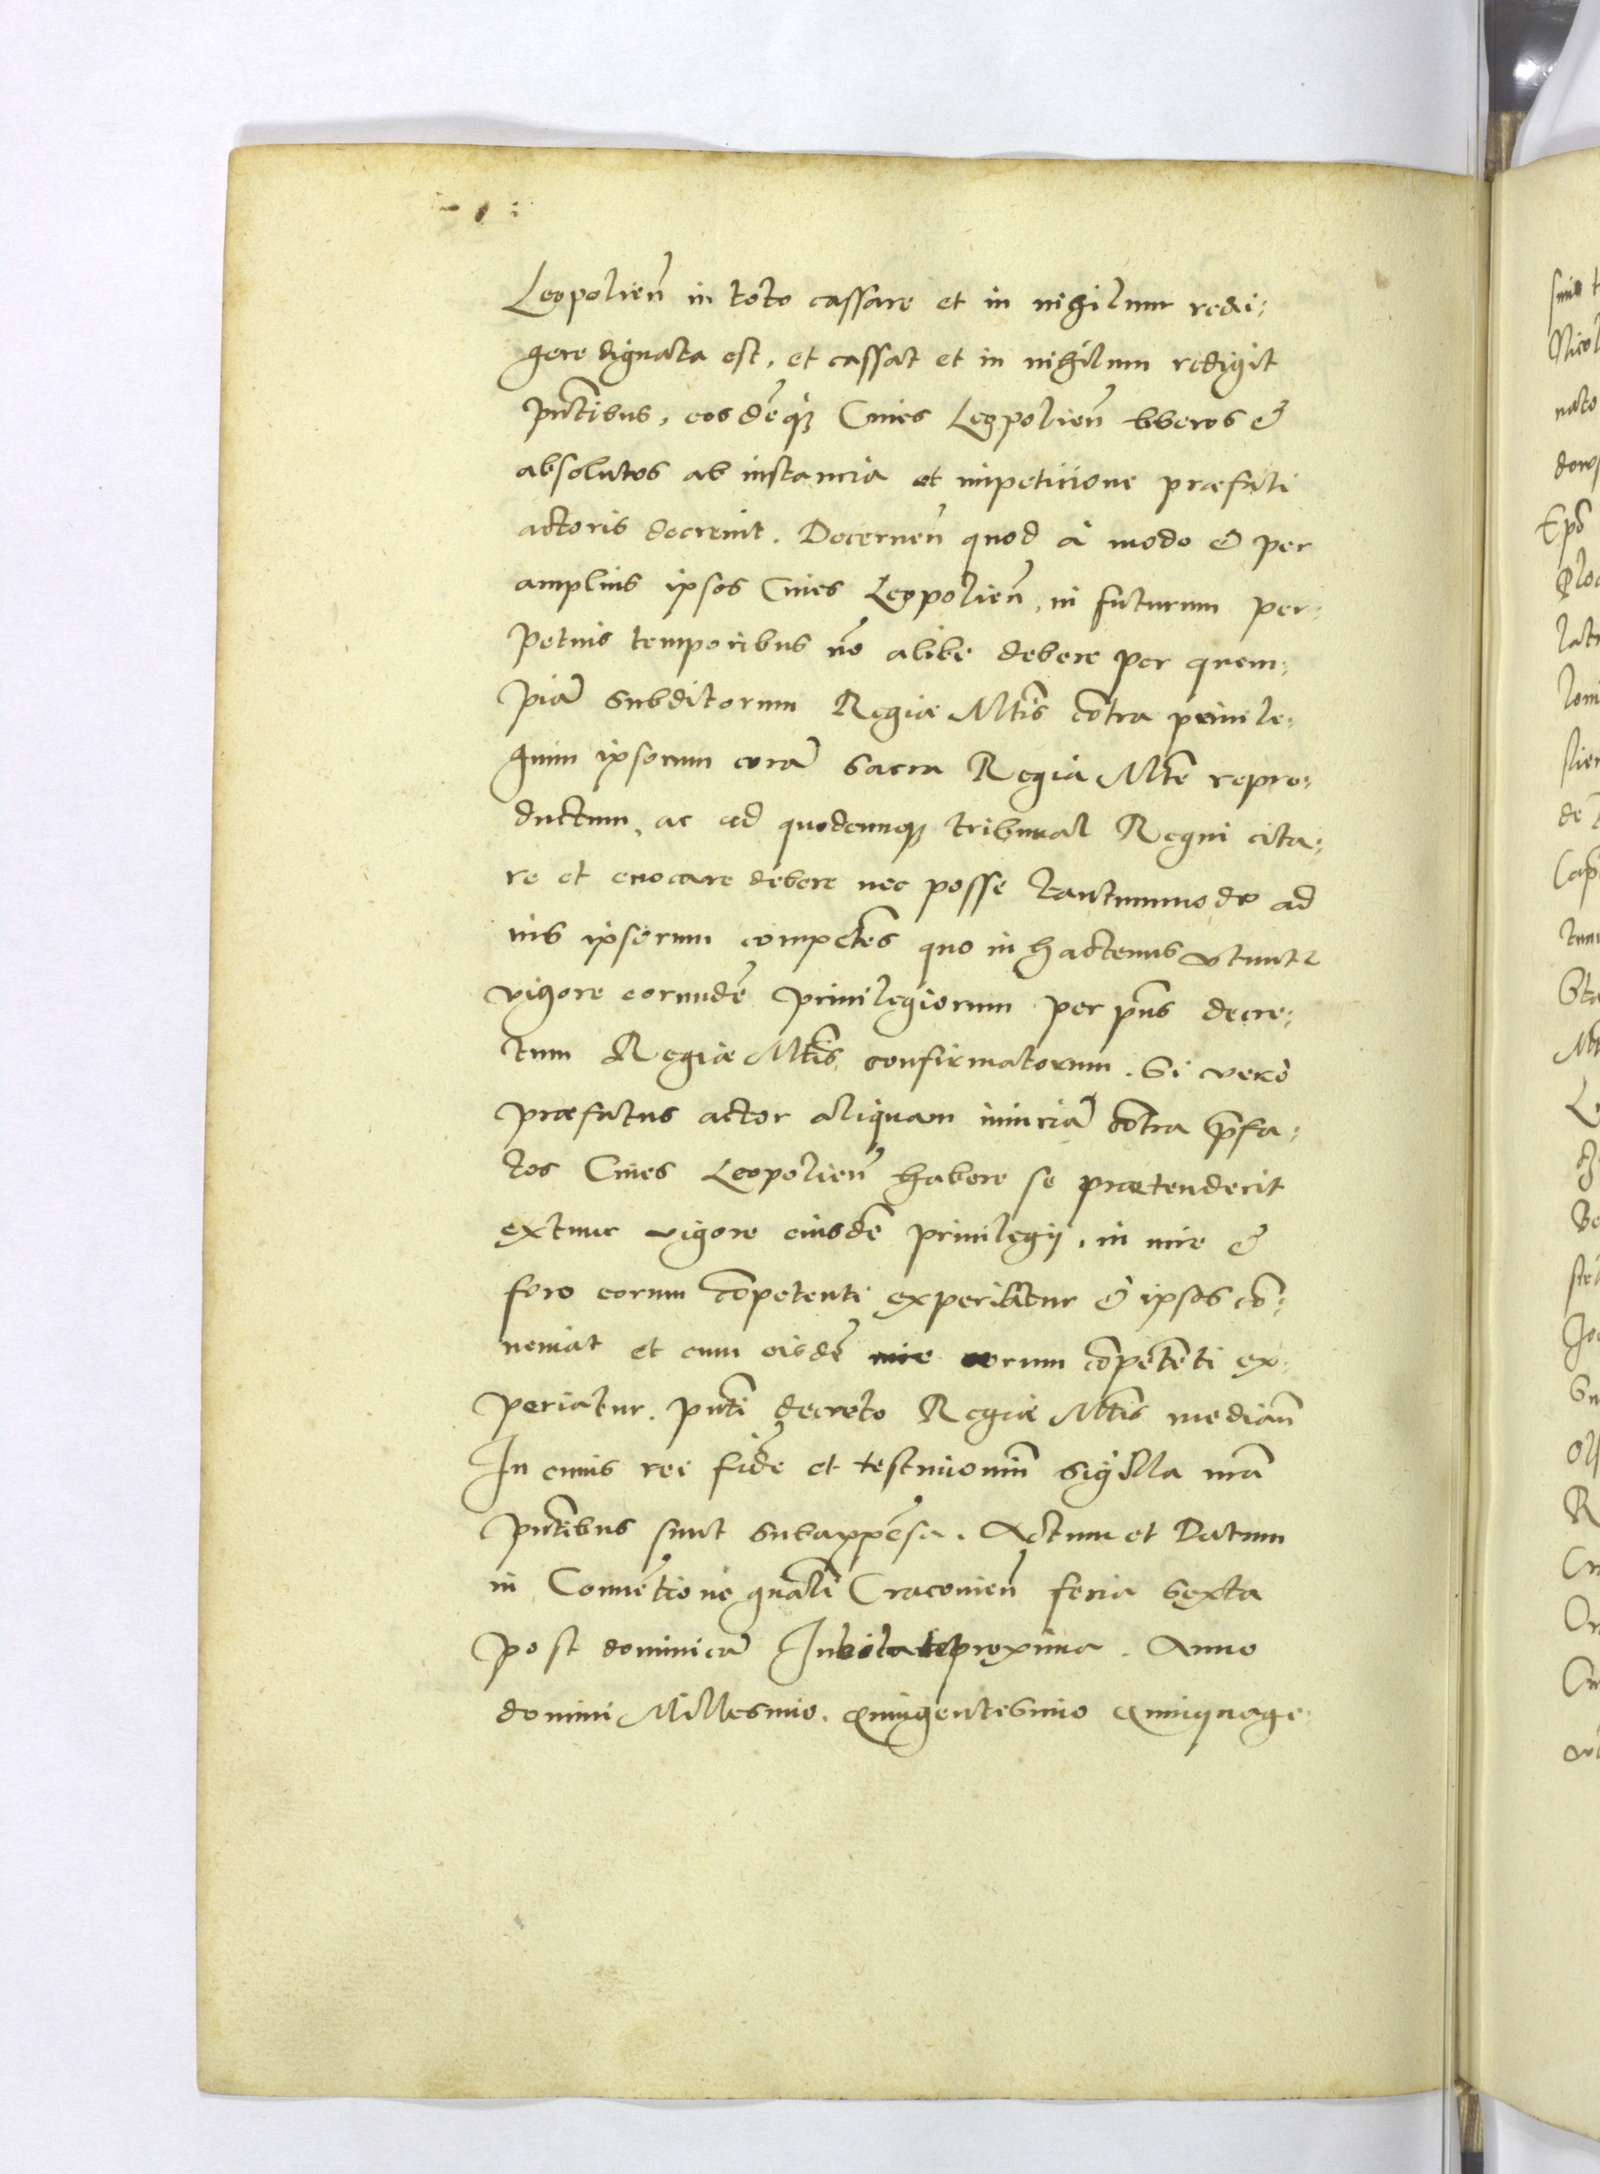 Leopolien̄ in toto cassare et in nihilum redi:
gere dignata est, et cassat et in nihilum redigit
pñtibus, eosdēq3 Ciues Leopolien̄ liberos &
absolutos ab instancia et impeticione præfati
actoris decreuit. Decernen̄ quod à modo & per
amplius ipsos Ciues Leopolien̄, in futurum per:
petuis temporibus nō alibi debere per quem:
piā subditorum Regiæ Mtis cōtra priuile:
gium ipsorum corā Sacra Regia Mte repro:
ductum, ac ad quodcunq3 tribunal Regni cita:
re et euocare debere nec posse tantummodo ad
ius ipsorum competēs quo in hactenus vtunt̃
vigore eorundē priuilegiorum per pñs decre:
tum Regiæ Mtis confirmatorum. Si verò
præfatus actor aliquam iniuriā cōtra p̄fa:
tos Ciues Leopolien̄ habere se prætenderit
extunc vigore eiusdē priuilegij, in iure &
foro eorum cōpetenti experiatur & ipsos cō:
ueniat et cum eisdē iure eorum cōpetenti ex:
periatur. pñti decreto Regiæ Mtis median̄
In cuius rei fidē et testimoniū Sigilla nr̄a
pñtibus sunt subappēsa. Actum et Datum
in Conuētione gnāli Cracouien̄ feria Sexta
post dominicā Iubilate proxima. Anno
domini Millesimo. Quingentesimo Quinquage: